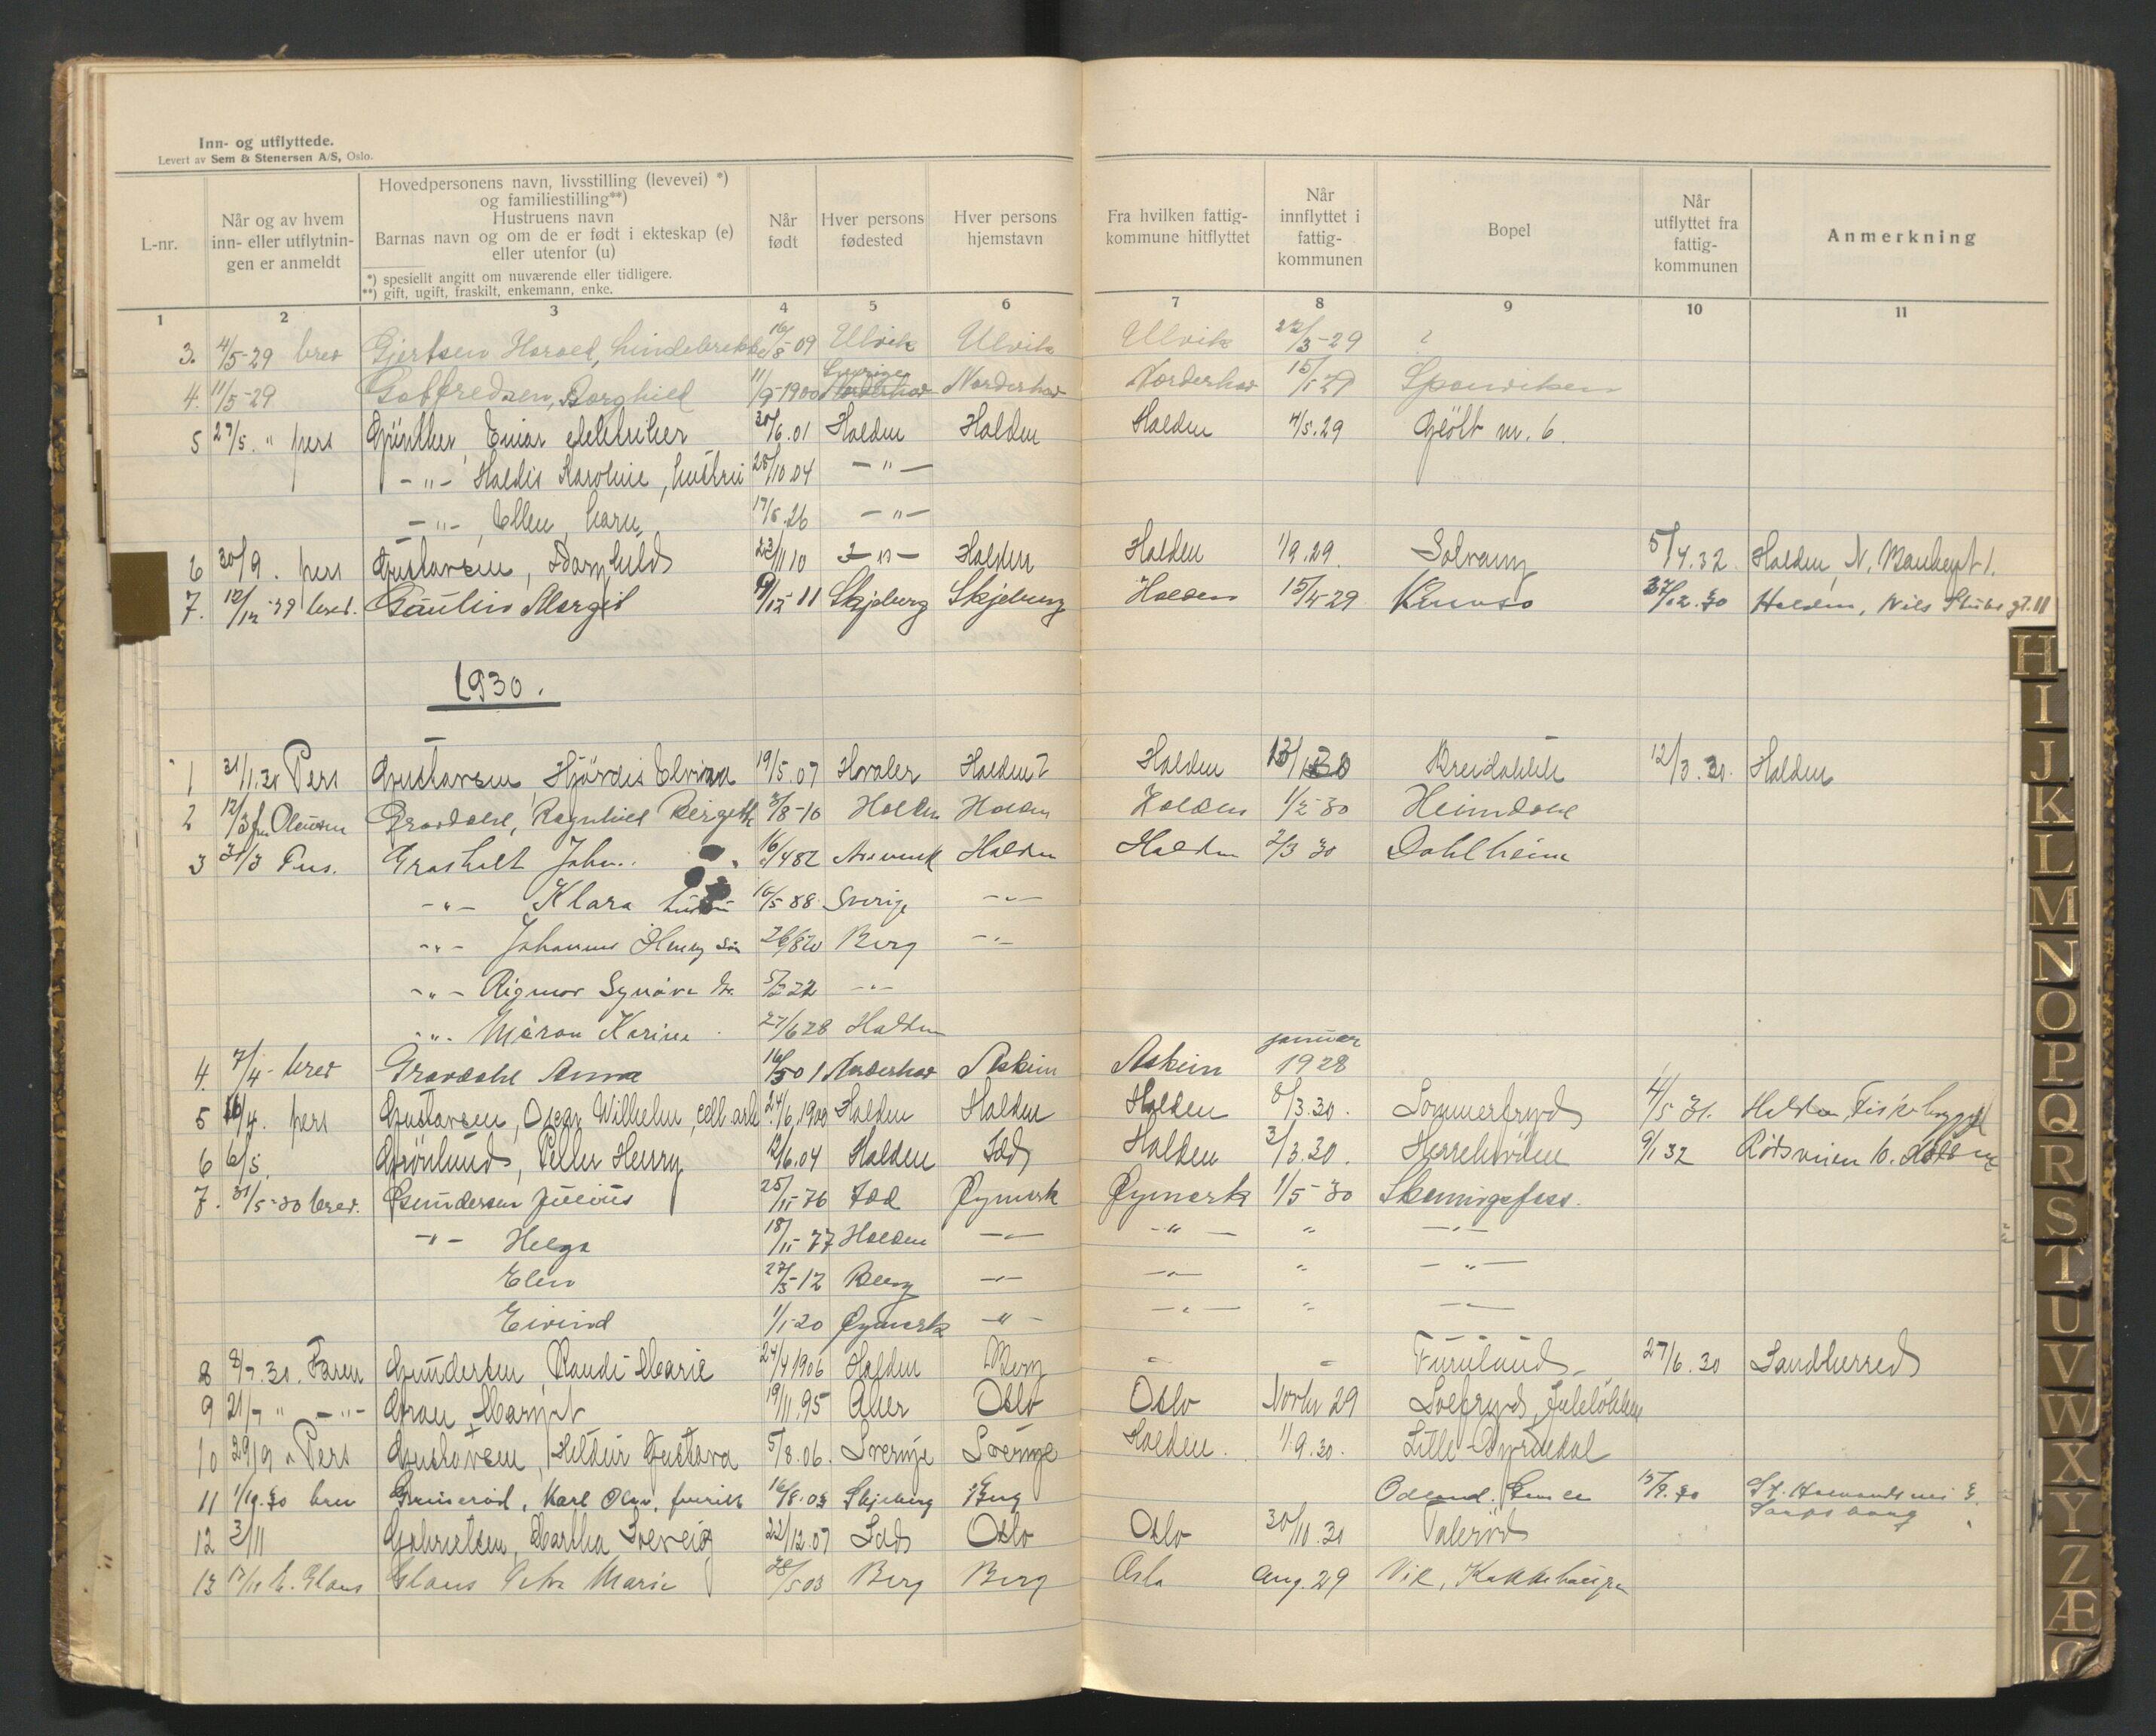 Inn- og utflyttede.
Levert av Sem & Stenersen A/S, Oslo.
L-nr.
Når og av hvem
inn- eller utflytnin-
gen er anmeldt
Hovedpersonens navn, livsstilling (levevei) *)
og familiestilling**)
Hustruens navn
Barnas navn og om de er født i ekteskap (e)
eller utenfor (u)
*) spesiellt angitt om nuværende eller tidligere.
**) gift, ugift, fraskilt, enkemann, enke.
Når
født
Hver persons
fødested
Hver persons
hjemstavn
Fra hvilken fattig-
kommune hitflyttet
Når
innflyttet i
fattig-
kommunen
Bopel
Når
utflyttet fra
fattig-
kommunen
Anmerkning
1 2 3 4 5 6 7 8 9 10 11
3. 4/5-29 brev Gjertsen Harald, Lindebrekke 16/8-09 Ulvik Ulvik Ulvik 22/3-29 ?
4. 11/5-29 Gottfredsen, Borghild 11/9-1900 Norderhov Norderhov Norderhov 15/1 29 Sponviken
5 27/5. " pers Günther, Einar elektriker 30/6.01 Halden Halden Halden 4/5.29 nr. 6.
-"- Haldis Karoline, hustru 28/10.04 -"-
-"- Ellen, barn 17/8.26 -"-
6 30/9. pers Gustavsen, 23/11 10 -"- Halden Halden 1/9.29. Solvang 5/4.32 Halden, N.
7. 12/12-29 brev. Gaulin Margit 9/12-11 Skjeberg Skjeberg Halden 15/4-29 27/12.30 Halden, Nils Stubs gt. 11
1930.
1 31/1.30 Pers Gustavsen, Hjördis Elvina 19/5.07 Hvaler Halden ? Halden 13/1 30 12/3.30. Halden
2 12/3 fru Olaussen Gravdahl, Ragnhild Birgitte 3/8-10 Halden Halden Halden 1/2-30 Heimdahl
3 31/3 Pers. Grasholt John. 16/4 82 Aremark Halden Halden 2/3 30 Dahlheim
-"- Klara hustru 16/5 88 Sverige -"-
-"- Johannes Henry sön 26/8 20 Berg -"-
-"- Rigmor Synöve 5/2 22 -"-
-"- Karine 27/6 28 Halden
januar
4. 7/4- brev Gravdahl Anna 16/5 01 Norderhov Askim Askim 1928
5 16/4. pers Gustavsen, Oscar Wilhelm, cell.arb 24/6.1900 Halden Halden Halden 8/3.30. Sommerfryd 4/5 31. Halden, Fiskebrygge
6 6/5. Grönlund, Henry 12/6.04 Halden Idd Halden 3/3.30. Herrebröden 9/1 32 Rödsveien 10. Halden
7. 31/5-30 brev. Gundersen Julius 25/11-76 Idd Øymark Øymark 1/5-30
-"- Helga 18/11-77 Halden -"- -"- " -"-
Elin 27/3-12 Berg -"- -"- " -"-
Eivind 1/1-20 Øymark -"- -"- " -"-
8 8/7.30. Faren Gundersen, Randi Marie 24/4 1906 Halden Berg - - Furulund 27/6.30 Sandherred
9 21/7 " -"- Gran Margit 19/11.95 Aker Oslo Oslo Novbr 29 Solfryd,
10 29/9 " Pers Gustavsen, Hildur Gustava 5/8.06. Sverige Sverige Halden. 1/9.30. Lille-
11 1/10.30 brev Grimseröd, Karl Olav, 16/8.03 Skjeberg Berg 15/9.30 St.
Sarpsborg
12 3/11 Gabrielsen, Martha Solveig 22/12.07 Idd Oslo Oslo 30/10.30
13 17/11 E. Glans Glans Marie 28/5 03 Berg Berg Oslo Aug. 29 Vik,
H
I
J
K
L
M
N
O
P
Q
R
S
T
U
V
W
X
Y
Z
Æ